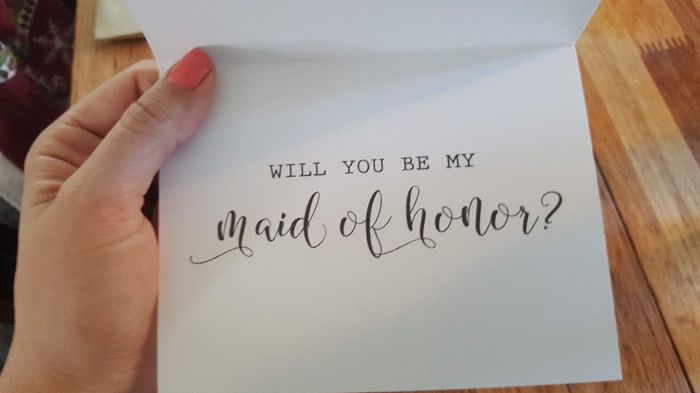 WILL YOU BE MY
maid of honor?